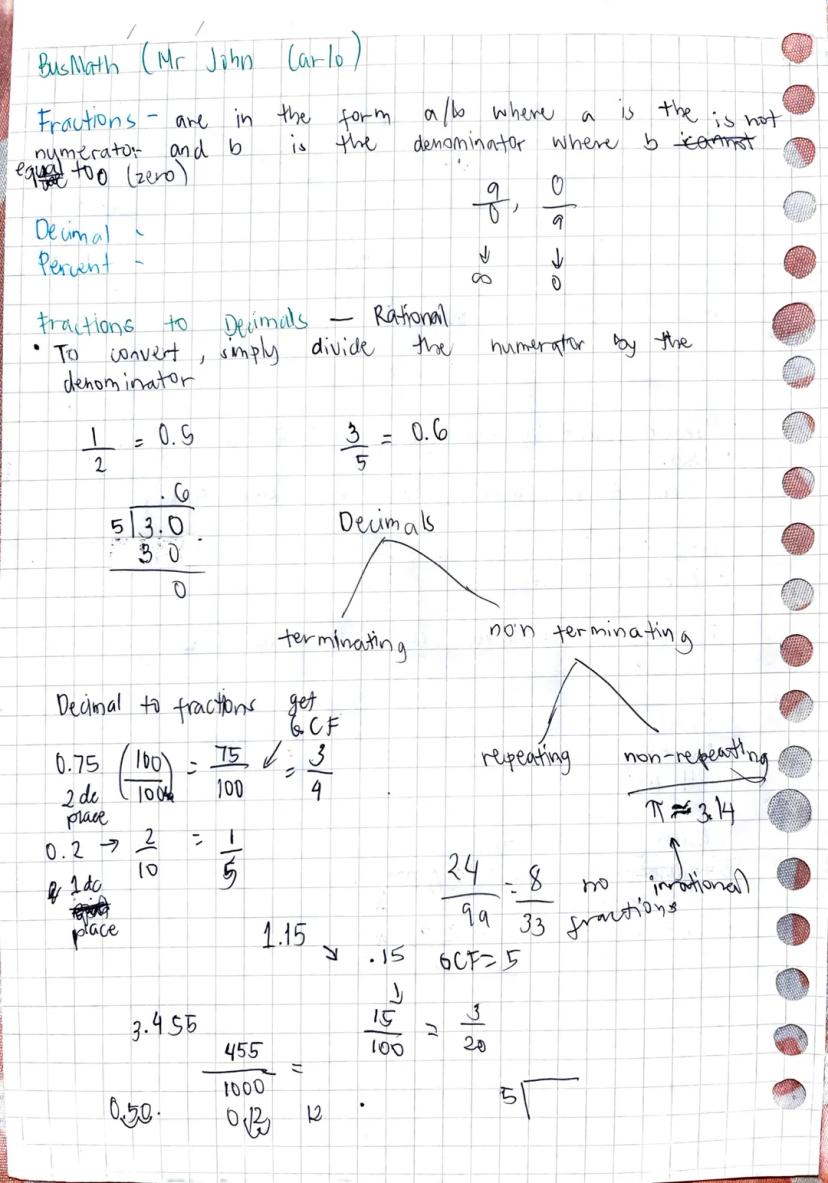 BusMath (Mr John Carlo)
Fractions - are in the form a/b where a is the
numerator and b is the denominator where b is not
equal to 0 (zero)
9/0, 0/9
↓ ↓
∞ 0
Decimal -
Percent -
Fractions to Decimals — Rational
• To convert, simply divide the numerator by the
denominator
1/2 = 0.5 3/5 = 0.6
.6
5 3.0
30
0
Decimals
terminating non terminating
repeating non-repeating
π ≈ 3.14
irrational
no fractions
Decimal to fractions get
GCF
0.75 (100/100) = 75/100 = 3/4
2 dc
place
0.2 → 2/10 = 1/5
1 dc
place
24/99 = 8/33
1.15 ↘ .15 GCF = 5
↓
15/100 = 3/20
3.455
455/1000 =
0.50. 0.12 12 .
5